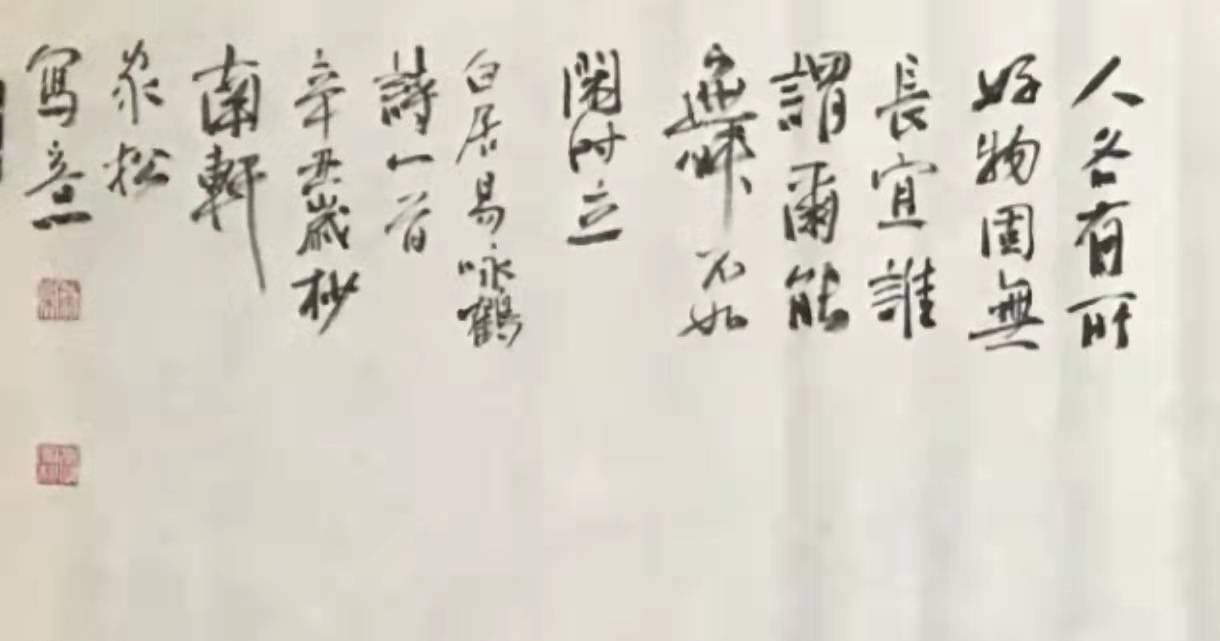 人各有所
好物固無
長宜誰
謂爾能
舞不如
閑时立
白居易咏鶴
詩一首
辛丑歲杪
南軒
松
寫意